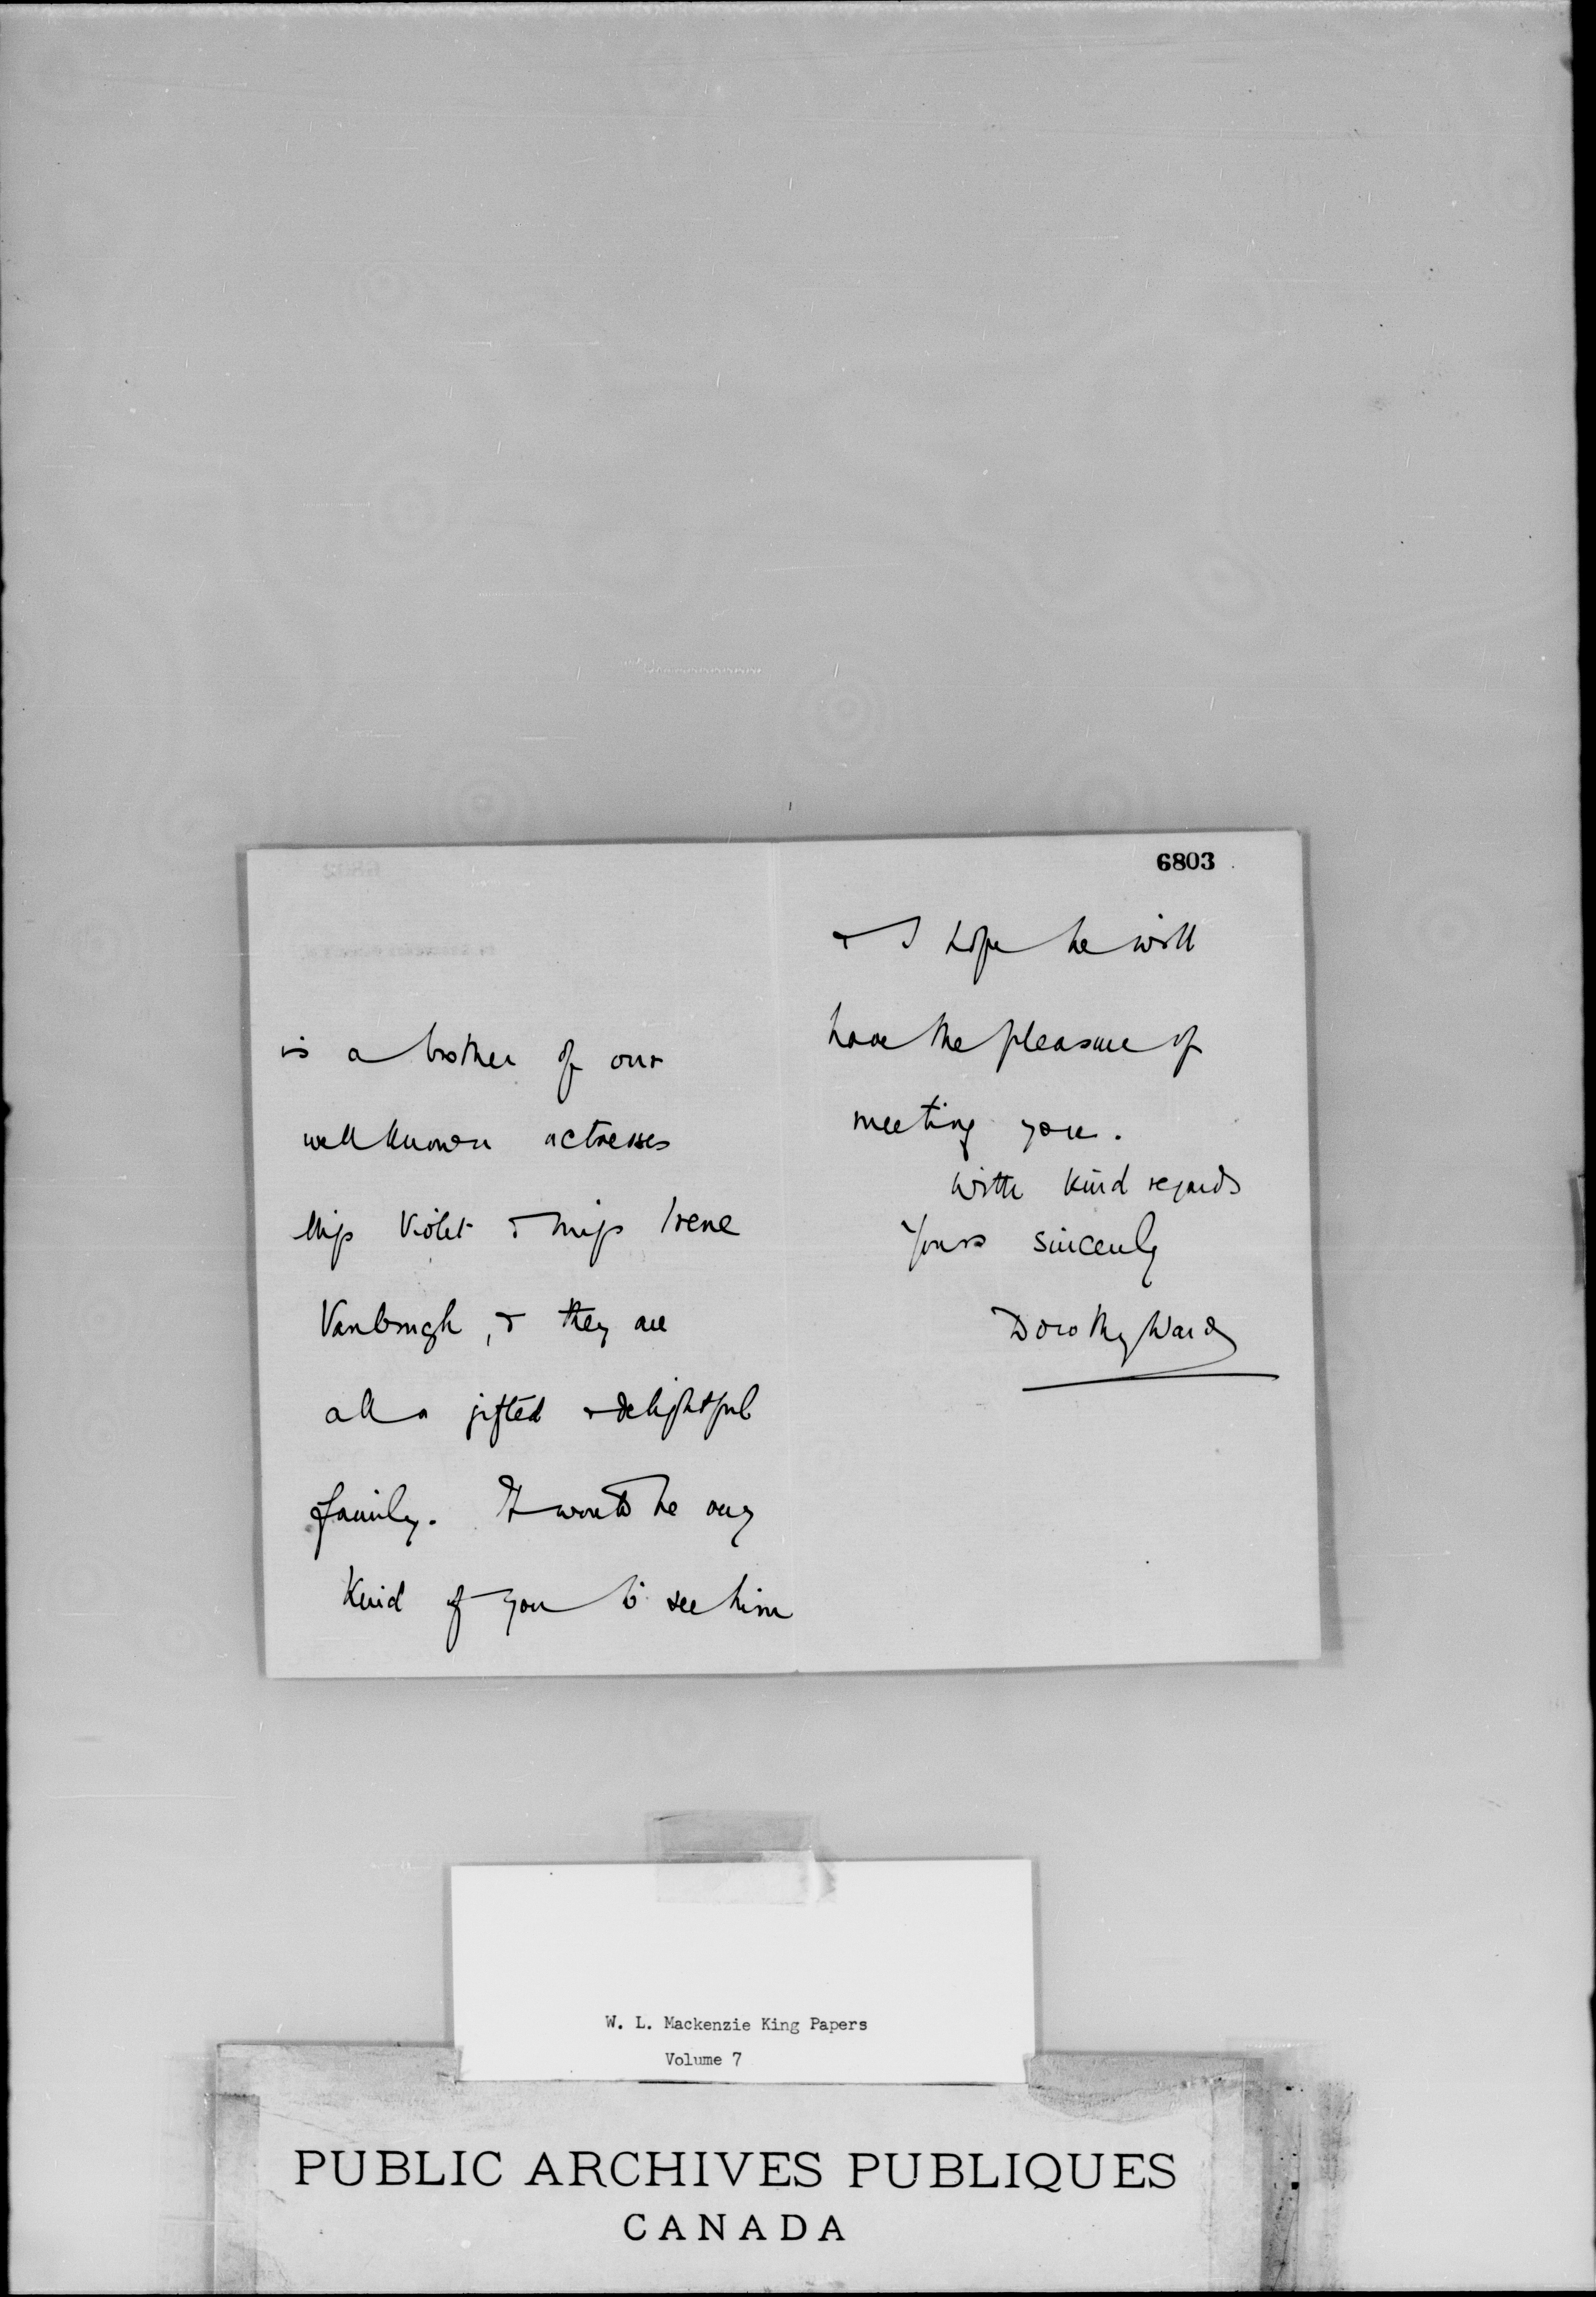 is a brother of our
well known actresses
Miss Violet & Miss Irene
Vanbrugh, & they are
all a gifted & delightful
family. It would be very
kind of you to see him
6803
& I hope he will
have the pleasure of
meeting you.
With kind regards
Yours sincerely
Dorothy Ward
W. L. Mackenzie King Papers
Volume 7
PUBLIC ARCHIVES PUBLIQUES
CANADA